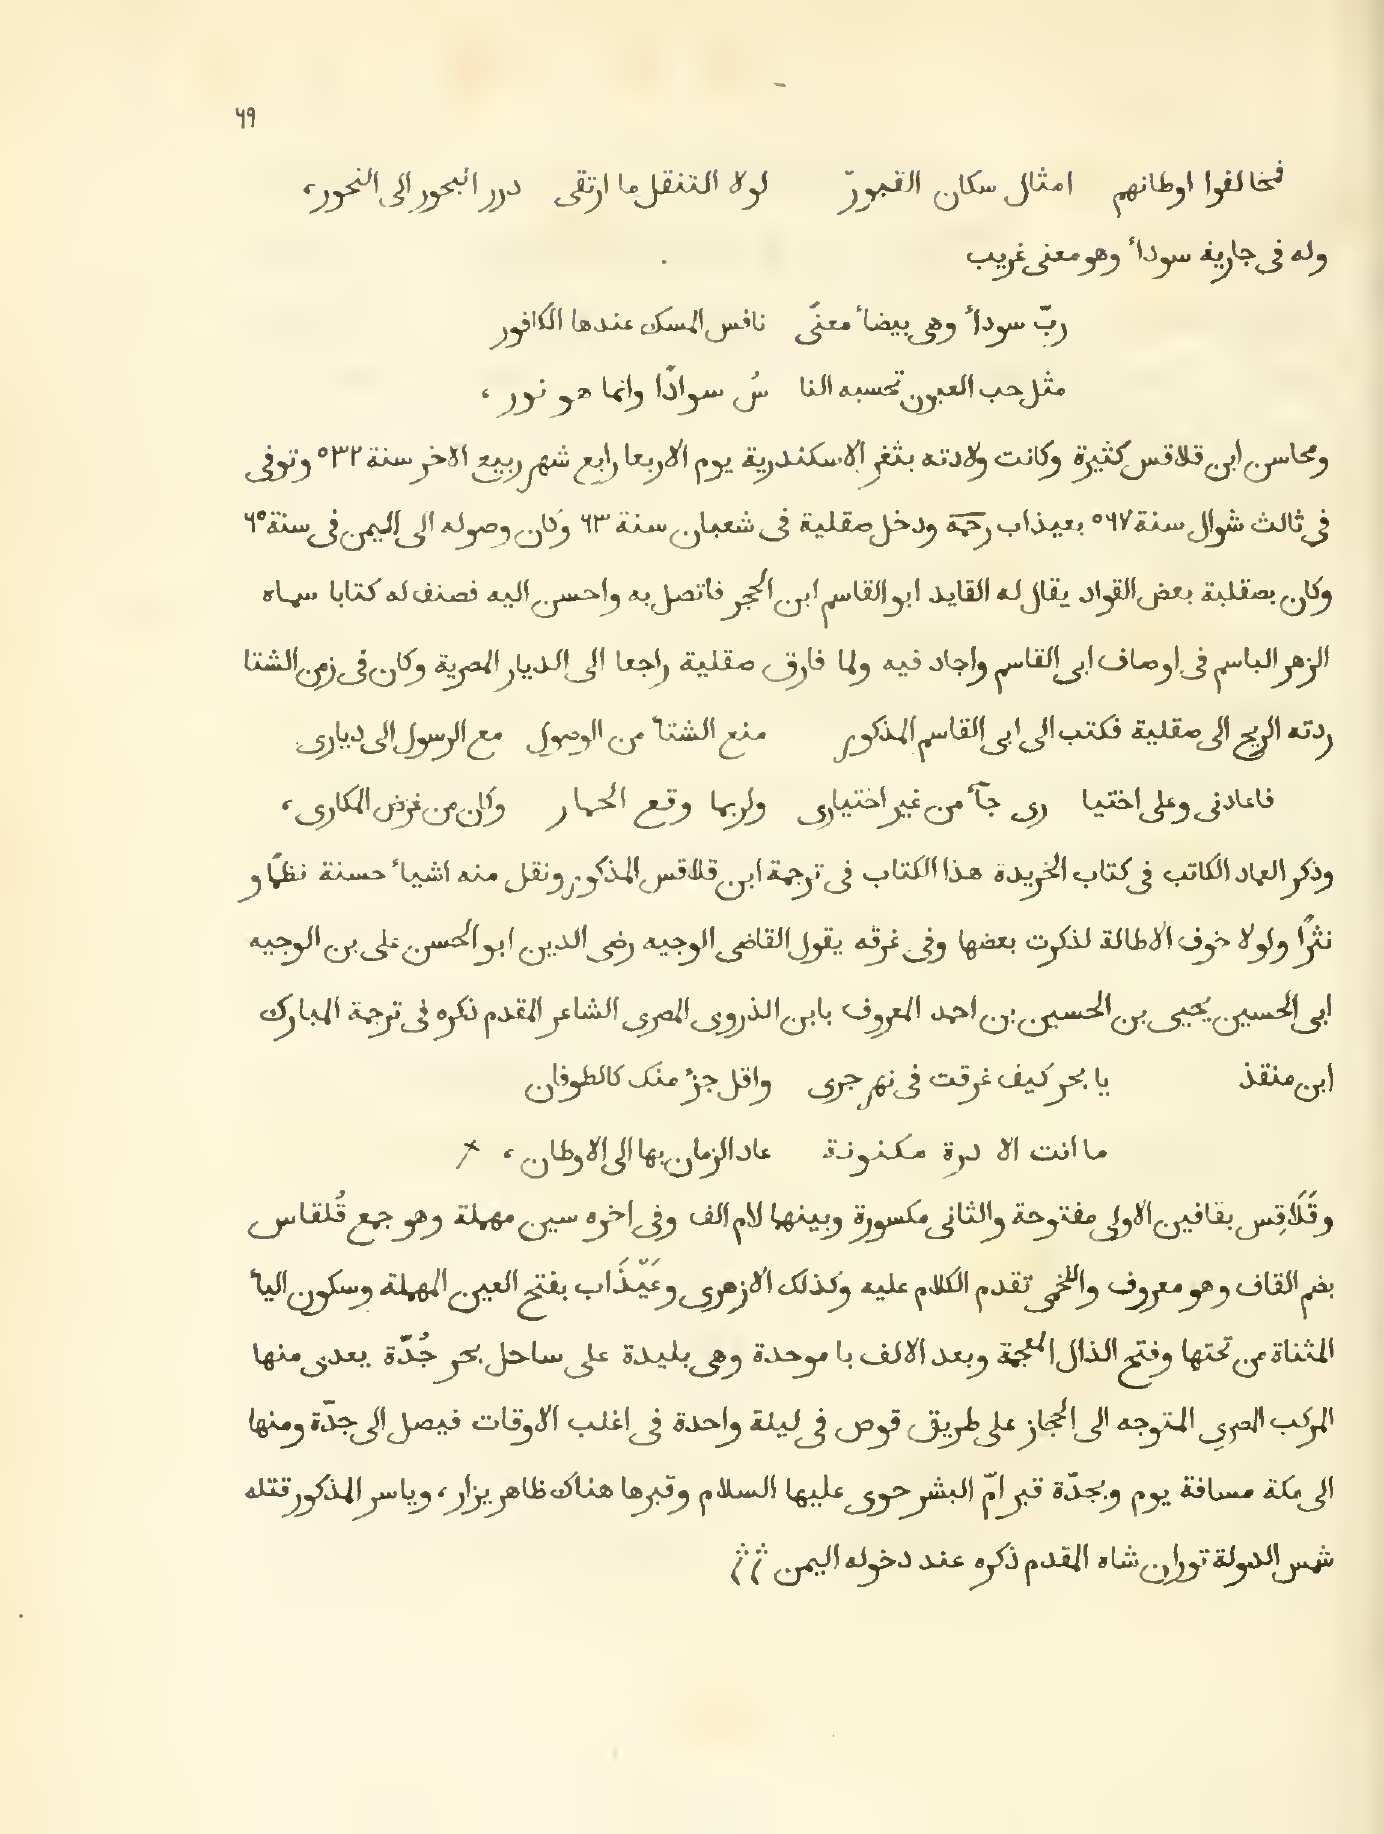 ٦٩
فخالفوا اوطانهم امثال سكان القبورّ لولا التنقل ما ارتقى درر البحور الى النحور،
وله فى جارية سوداءً وهو معنى غريب
ربّ سوداء وهى بيضاء معنًى نافس المسك عندها الكافور
مثل حب العيون تحسبه النا سُ سوادًا وانما هو نور ،
ومحاسن ابن قلاقس كثيرة وكانت ولادته بثغر الاسكندرية يوم الاربعا رابع شهر ربيع الاخر سنة ٥٣٢ وتوفى
فى ثالث شوال سنة ٥٦٧ بعيذاب رحمة ودخل صقلية فى شعبان سنة ٦٣ وكان وصوله الى اليمن فى سنة ٦٥
وكان بصقلية بعض القواد يقال له القايد ابو القاسم ابن الحجر فاتصل به واحسن اليه فصنف له كتابا سماه
الزهر الباسم فى اوصاف ابى القاسم واجاد فيه ولما فارق صقلية راجعا الى الديار المصرية وكان فى زمن الشتا
ردته الريح الى صقلية فكتب الى ابى القاسم المذكور منع الشتاء من الوصول مع الرسول الى ديارى
فاعادنى وعلى اختيا رى جاء من غير اختيارى ولربما وقع الحمار وكان من غرض المكارى ،
وذكر العماد الكاتب فى كتاب الخريدة هذا الكتاب فى ترجمة ابن قلاقس المذكور ونقل منه اشياء حسنة نظمًا و
نثرًا ولولا خوف الاطالة لذكرت بعضها وفى غرقه يقول القاضى الوجيه رضى الدين ابو الحسن على بن الوجيه
ابى الحسين يحيى بن الحسين بن احمد المعروف بابن الذروى المصرى الشاعر المقدم ذكره فى ترجمة المبارك
ابن منقذ يا بحر كيف غرقت فى نهر جرى واقل جزء منك كالطوفان
ما انت الا درة مكنونة عاد الزمان بها الى الاوطان ،
وقَلَاقِس بقافين الاولى مفتوحة والثانى مكسورة وبينهما لام الف وفى اخره سين مهملة وهو جمع قُلقاس
بضم القاف وهو معروف واللخمى تقدم الكلام عليه وكذلك الازهرى وعَيْذَاب بفتح العين المهملة وسكون الياء
المثناة من تحتها وفتح الذال المعجمة وبعد الالف با موحدة وهى بليدة على ساحل بحر جُدّة يعدى منها
المركب المصرى المتوجه الى الحجاز على طريق قوص فى ليلة واحدة فى اغلب الاوقات فيصل الى جدّة ومنها
الى مكة مسافة يوم وبجدّة قبر امّ البشر حوى عليها السلام وقبرها هناك ظاهر يزار ، وياسر المذكور قتله
شمس الدولة توران شاه المقدم ذكره عند دخوله اليمن